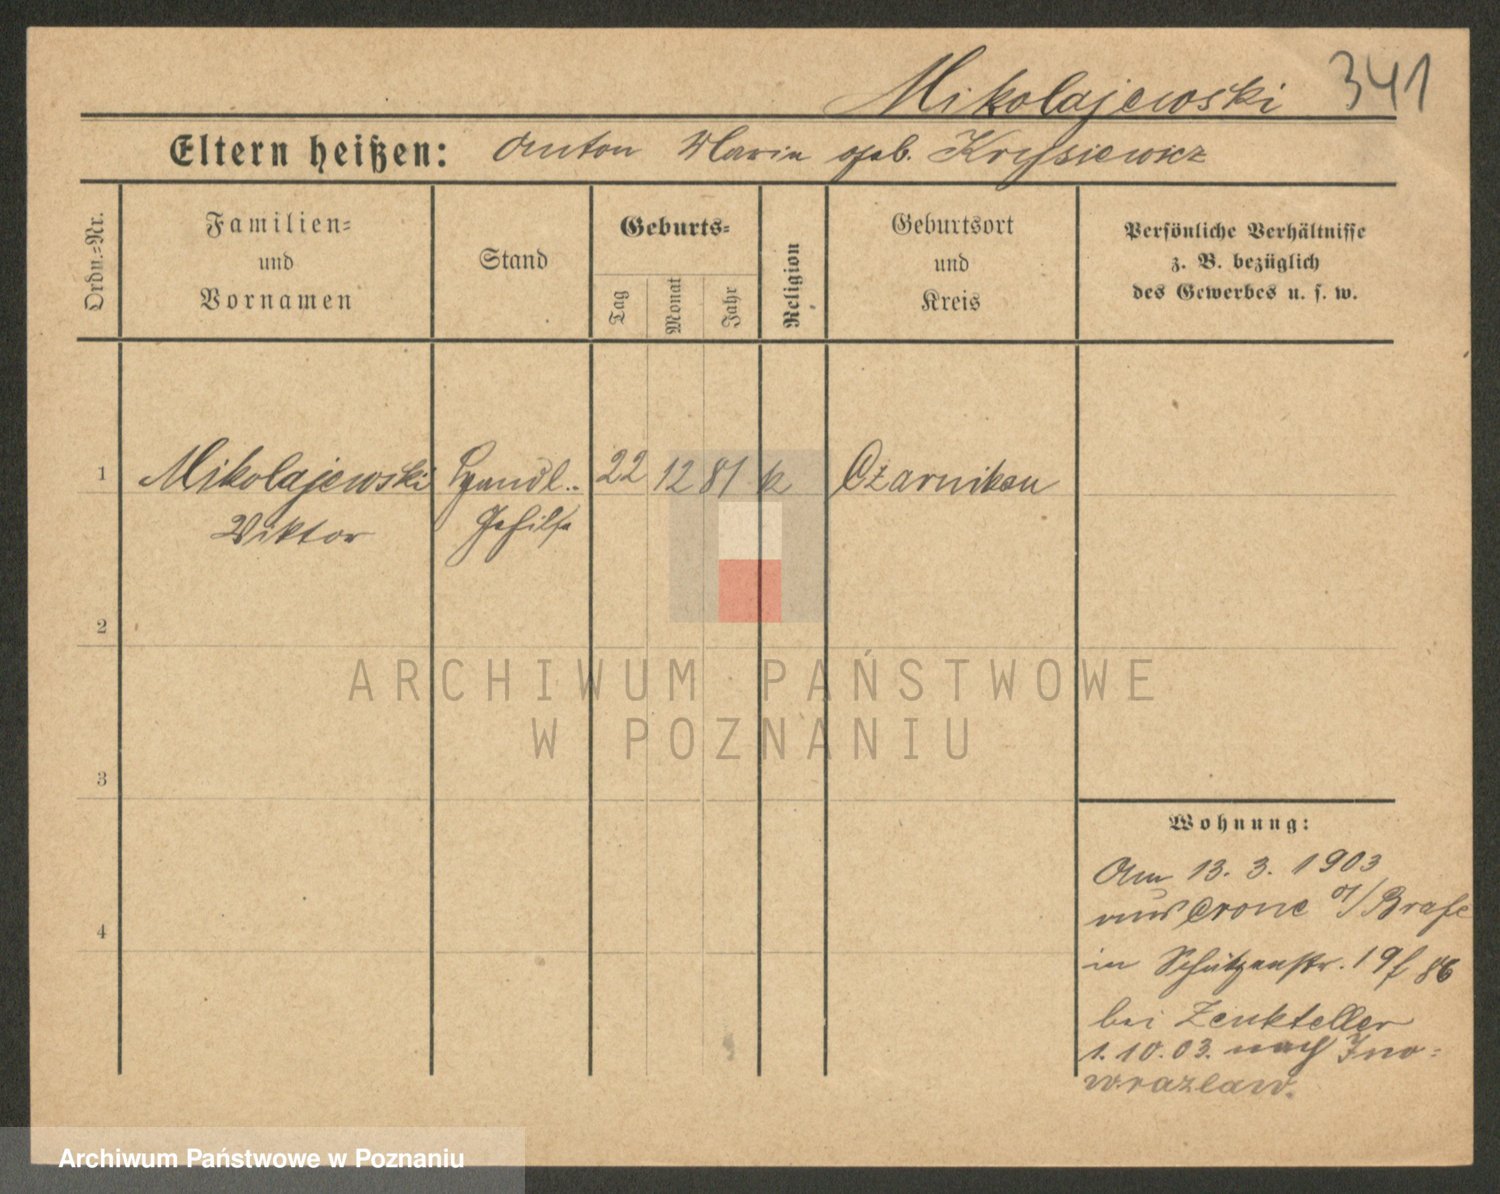 Mikolajewski 341
Eltern heißen: Anton Maria geb. Krysiewicz
Ordn.-Nr.
Familien-
und
Vornamen
Stand
Geburts-
Tag
Monat
Jahr
Religion
Geburtsort
und
Kreis
Persönliche Verhältnisse
z. B. bezüglich
des Gewerbes u. s. w.
1 Mikolajewski Handl.- 22 12 81 k Czarnikau
Viktor Gehilfe
2
ARCHIWUM PAŃSTWOWE
W POZNANIU
3
Wohnung:
Am 13. 3. 1903
aus Crone a/Brahe
4
in Schützenstr. 19
bei Zenkteller
1.10.03. nach Ino-
wrazlaw.
Archiwum Państwowe w Poznaniu